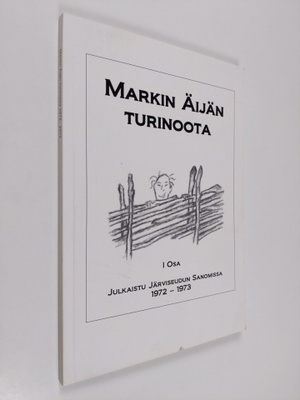 Markin Äijän
turinoota
I Osa
Julkaistu Järviseudun Sanomissa
1972 – 1973